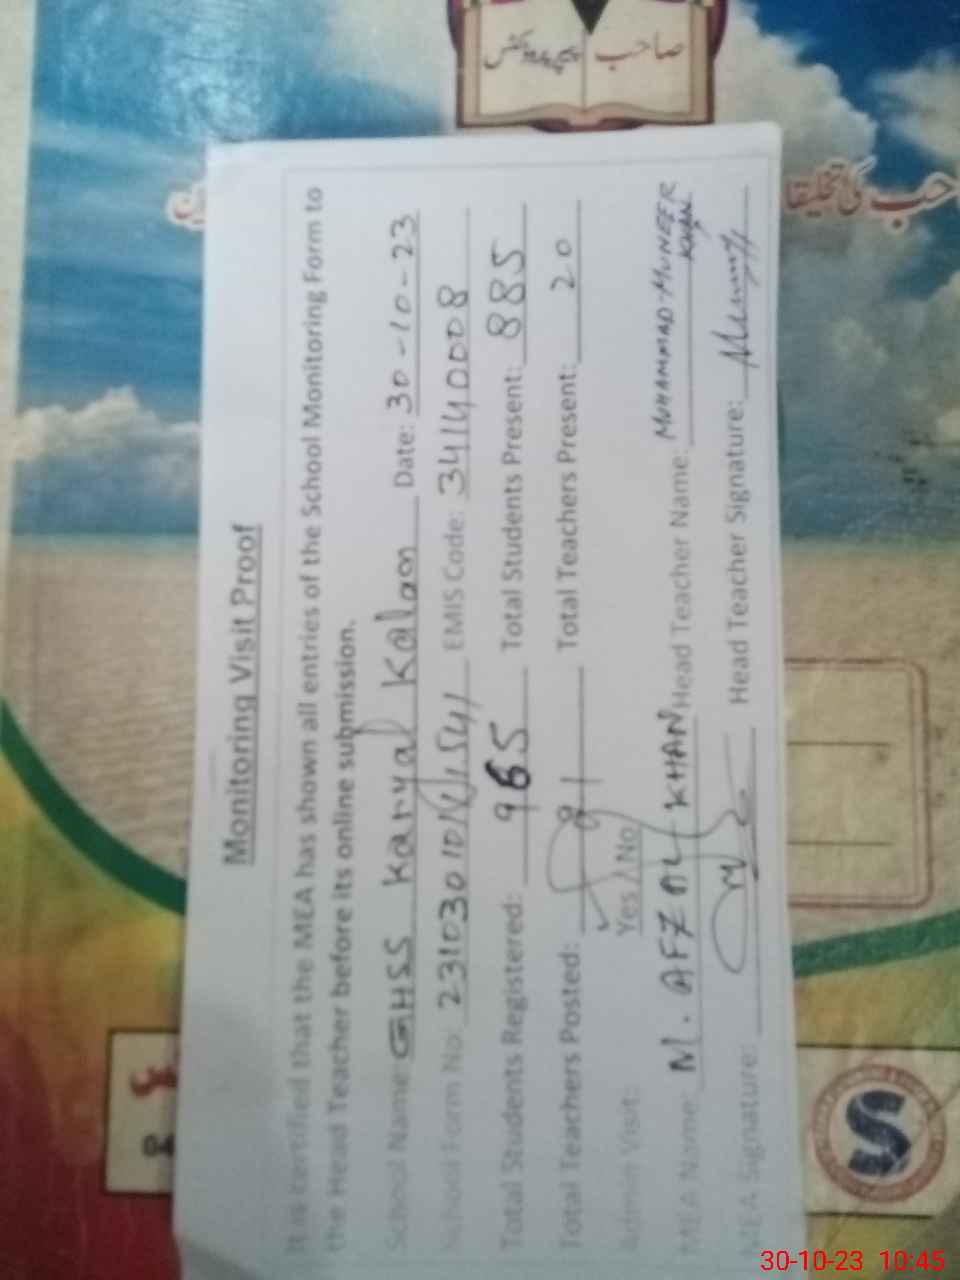 صاحب
حب کی تخلیقا
Monitoring Visit Proof
It is certified that the MEA has shown all entries of the School Monitoring Form to
the Head Teacher before its online submission.
School Name: GHSS Karyal Kalan Date: 30-10-23
School Form No: EMIS Code: 34140008
Total Students Registered: 965 Total Students Present: 885
Total Teachers Posted: Total Teachers Present: 20
Admin Visit: Yes / No
MEA Name: M. AFZAL KHAN Head Teacher Name: MUHAMMAD MUNEER KHAN
MEA Signature: Head Teacher Signature:
30-10-23 10:45